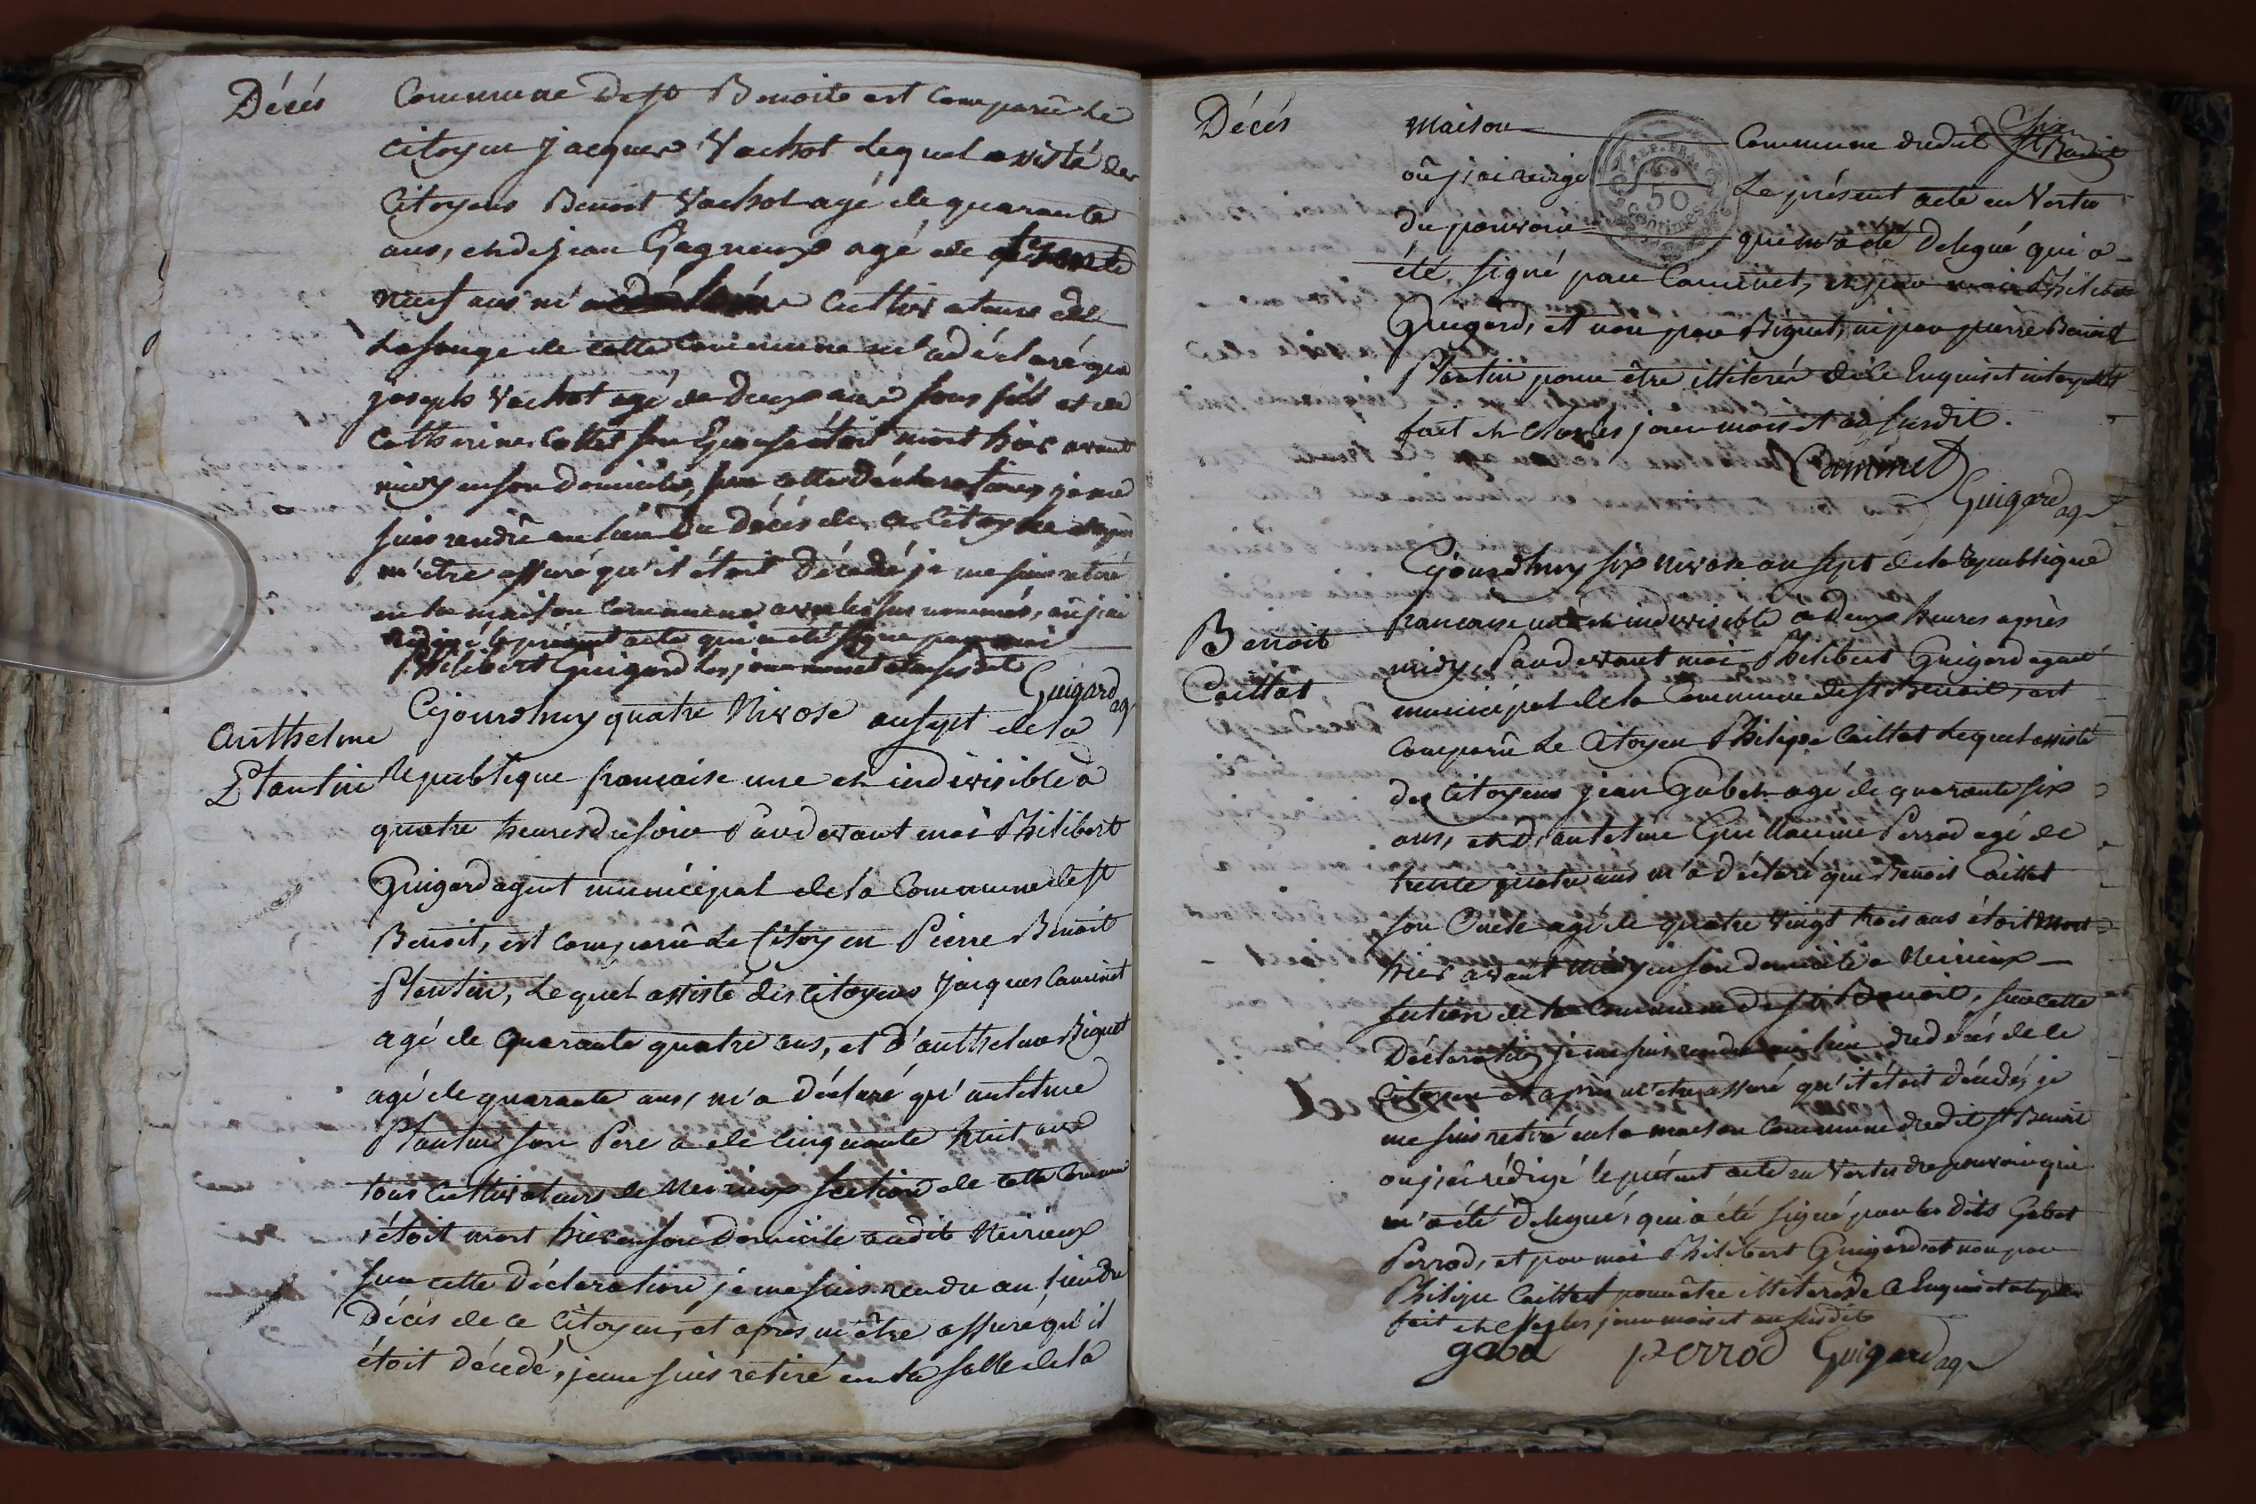 Décés
Commune de st Benoite est comparû Le
Citoyen jacques Vachot Lequel assisté des
Citoyens Benoit Vachot agé de quarante
ans, et de jean Gagneux agé de
neuf ans Cultivateurs de
de cette Commune m'a déclaré que
joseph Vachot agé de deux ans sous fils et de
Catherine Collet son Epouse étoit mort hier avant
midy en son domicile, sur cette déclaration je me
suis rendû au lieu du Décés de ce Citoyen et après
m'etre assuré qu'il étoit décedé je me suis retiré
en la maison commune avec les sus nommés, où j'ai
rédigé le présent acte qui a été signé par moi
Philibert Guigard les jour mois et an susdit
Guigard ag
Anthelme
Plantin
Cejourdhuy quatre Nivose an sept de la
Republique française une et indivisible à
quatre heures du soir Pardevant moi Philibert
Guigard agent municipal de la Commune de st
Benoit, est comparû Le Citoyen Pierre Benoit
Plantin, Lequel assisté des Citoyens Jacques Caminet
agé de quarante quatre ans, et d'anthelme Biguet
agé de quarante ans, m'a déclaré qu'antelme
Plantin son Pere a de Cinquante huit ans
tous Cultivateurs de Neirieux section de cette Commune
étoit mort hier en son Domicile audit Neirieux
sur cette Déclaration je me suis rendu au lieu du
Décés de ce Citoyen, et après m'être assuré qu'il
étoit décedé, je me suis retiré en la salle de la
Décés
maison Commune dudit st Benoit
où j'ai rédigé Le présent acte en Vertu
du pouvoir qui m'a été Delegué qui a
été signé par Caminet, et par moi Philibert
Guigard, et non par Biguet, ni par pierre Benoit
Plantin pour être illiterés de ce Enquis et interpellés
fait et Clos les jour mois et an susdit.
Caminet
Guigard ag
Benoit
Caillat
Cejourdhuy six nivose an sept de la Republique
francaise une et indivisible à deux heures après
midy, Pardevant moi Philibert Guigard agent
municipal de la Commune de st Benoit, est
comparû Le Citoyen Philipe Caillat Lequel assisté
des Citoyens jean Gabet agé de quarante six
ans, et d'antelme Guillaume Perrod agé de
trente quatre ans m'a déclaré que Benoit Caillat
son Oncle agé de quatre vingt trois ans étoit mort
hier avant midy en son domicile a Neirieux
section de la Commune de st Benoit, sur cette
Déclaration je me suis rendu au lieu du décés de ce
Citoyen et après m'etre assuré qu'il étoit décedé, je
me suis retiré en la maison Commune dudit st Benoit
ou j'ai rédigé le présent acte en Vertu du pouvoir qui
m'a été délegué, qui a été signé par les dits Gabet
Perrod, et par moi Philibert Guigard et non par
Philipe Caillat pour être illiteré de ce Enquis et
fait et Clos les jour mois et an susdits
gabet perrod Guigard ag
REP. FRA.
50
centimes